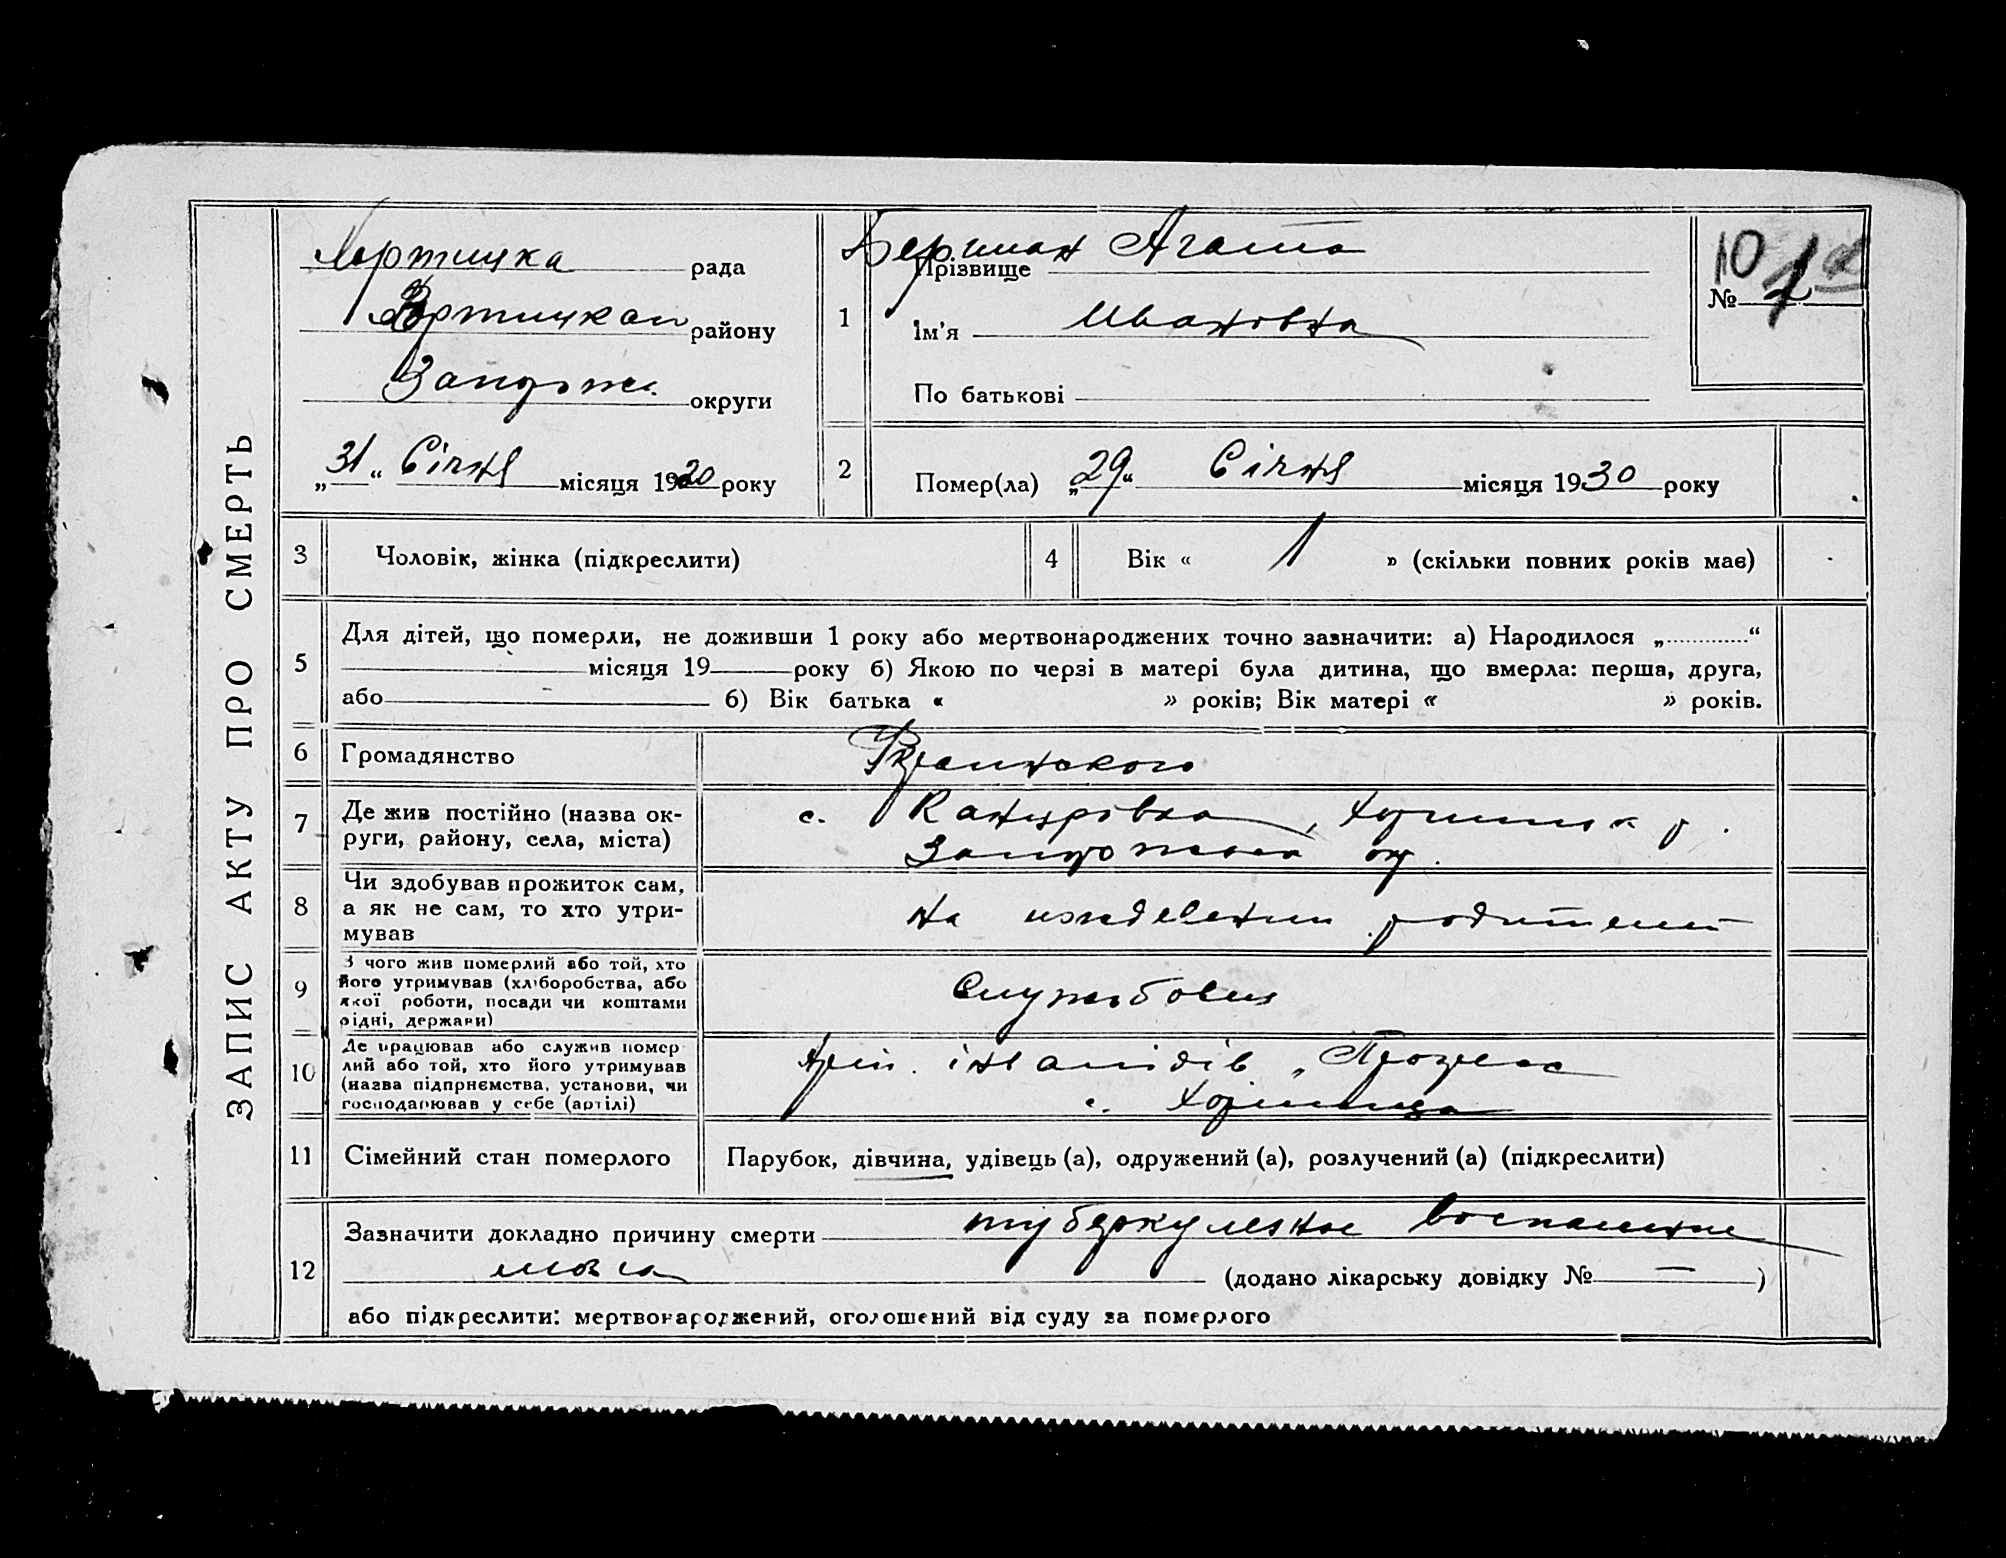 ЗАПИС АКТУ ПРО СМЕРТЬ
Хортицка рада
Хортицкаи району
Запорож. округи
„31“ Січня місяця 1930 року
1
Берiman Агата
Прізвище
Ім’я Ивановна
По батькові
№ 1
10
2
Помер(ла) „29“ Січня місяця 1930 року
3 Чоловік, жінка (підкреслити)
4 Вік « 1 » (скільки повних років має)
5 Для дітей, що померли, не доживши 1 року або мертвонароджених точно зазначити: а) Народилося „............“
місяця 19 року б) Якою по черзі в матері була дитина, що вмерла: перша, друга,
або б) Вік батька « » років; Вік матері « » років.
6 Громадянство
7 Де жив постійно (назва ок-
руги, району, села, міста)
с. Канцеровка, Хортицьк р.
Запорожска окр.
8 Чи здобував прожиток сам,
а як не сам, то хто утри-
мував
на иждевении родителей
9 З чого жив померлий або той, хто
його утримував (хліборобства, або
якої роботи, посади чи коштами
рідні, держави)
Службовця
10 Де працював або служив помер
лий або той, хто його утримував
(назва підприємства, установи, чи
господарював у себе (артілі)
Арт. інвалідів „Прогресс
с. Хортица
11 Сімейний стан померлого Парубок, дівчина, удівець (а), одружений (а), розлучений (а) (підкреслити)
12 Зазначити докладно причину смерти туберкулезное воспаление
мозга (додано лікарську довідку № — )
або підкреслити: мертвонароджений, оголошений від суду за померлого